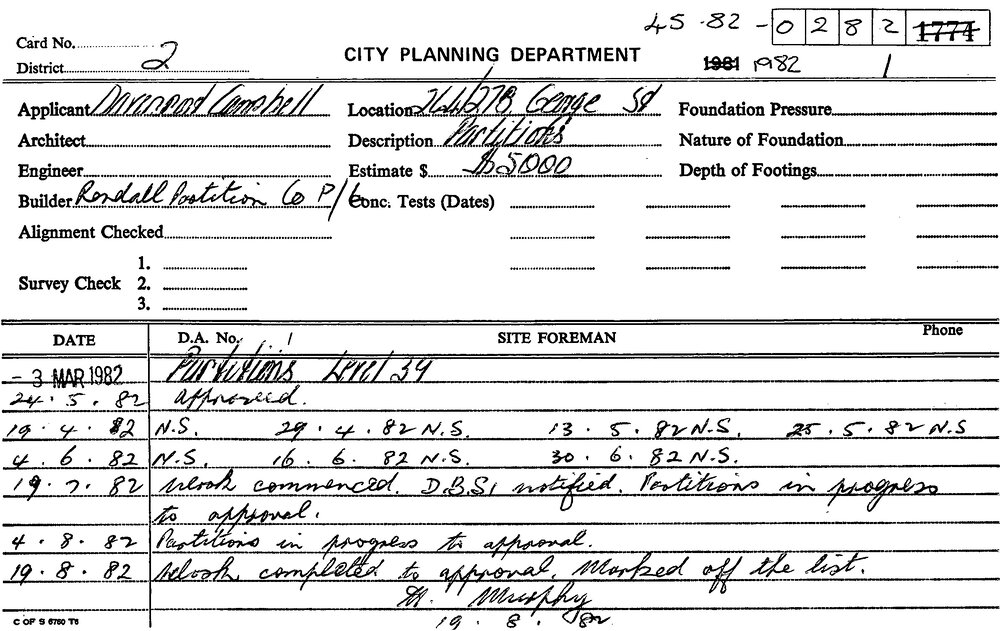 45·82 - 0 2 8 2 1774
Card No.
District 2
CITY PLANNING DEPARTMENT
1981 1982 1
Applicant Davenport Campbell
Location 264/278 George St
Foundation Pressure
Architect
Description Partitions
Nature of Foundation
Engineer
Estimate $ $5000
Depth of Footings
Builder Rendall Partition Co P/L
Conc. Tests (Dates)
Alignment Checked
Survey Check
1.
2.
3.
DATE D.A. No. SITE FOREMAN Phone
- 3 MAR 1982 Partitions Level 39
24 . 5 . 82 approved.
19 . 4 . 82 N.S. 29 . 4 . 82 N.S. 13 . 5 . 82 N.S. 25 . 5 . 82 N.S
4 . 6 . 82 N.S. 16 . 6 . 82 N.S. 30 . 6 . 82 N.S.
19 . 7 . 82 Work commenced. D.B.S. notified. Partitions in progress
to approval.
4 . 8 . 82 Partitions in progress to approval.
19 . 8 . 82 Work completed to approval. Marked off the list.
M. Murphy
19 . 8 . 82
C OF S 6760 T6